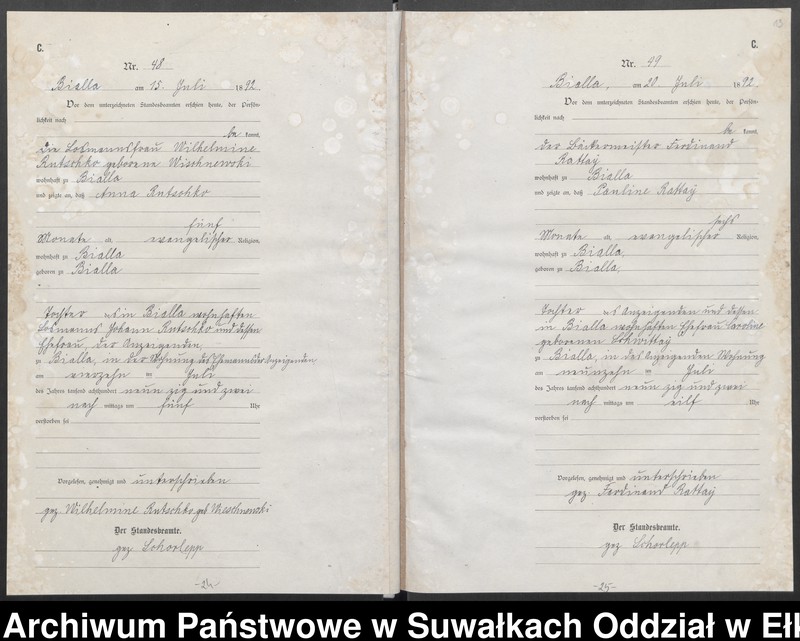 C.
Nr. 48
Bialla am 15. Juli 1892
Vor dem unterzeichneten Standesbeamten erschien heute, der Persön-
lichkeit nach
be kannt,
die Losmannsfrau Wilhelmine
Rutschko geborene Wischnewski
wohnhaft zu Bialla
und zeigte an, daß Anna Rutschko
fünf
Monate a. evangelischer Religion,
wohnhaft zu Bialla
geboren zu Bialla
Tochter des in Bialla wohnhaften
Losmanns Johann Rutschko und dessen
Ehefrau, der Anzeigenden,
zu Bialla, in der Wohnung des Ehemannes der Anzeigenden
am vierzehn ten Juli
des Jahres tausend achthundert neun zig und zwei
nach mittags um fünf Uhr
verstorben sei
Vorgelesen, genehmigt und unterschrieben
gez. Wilhelmine Rutschko geb. Wischnewski
Der Standesbeamte.
gez Schorlepp
-24-
13
C.
Nr. 49
Bialla, am 20. Juli 1892.
Vor dem unterzeichneten Standesbeamten erschien heute, der Persön-
lichkeit nach
be kannt,
der Bäckermeister Ferdinand
Rattay
wohnhaft zu Bialla
und zeigte an, daß Pauline Rattay
sechs
Monate a. evangelischer Religion,
wohnhaft zu Bialla,
geboren zu Bialla,
Tochter des Anzeigenden und dessen
in Bialla wohnhaften Ehefrau Caroline
geborenen Schwittay
zu Bialla, in des Anzeigenden Wohnung
am neunzehn ten Juli
des Jahres tausend achthundert neun zig und zwei
nach mittags um eilf Uhr
verstorben sei
Vorgelesen, genehmigt und unterschrieben
gez. Ferdinand Rattay
Der Standesbeamte.
gez Schorlepp
-25-
Archiwum Państwowe w Suwałkach Oddział w Eł